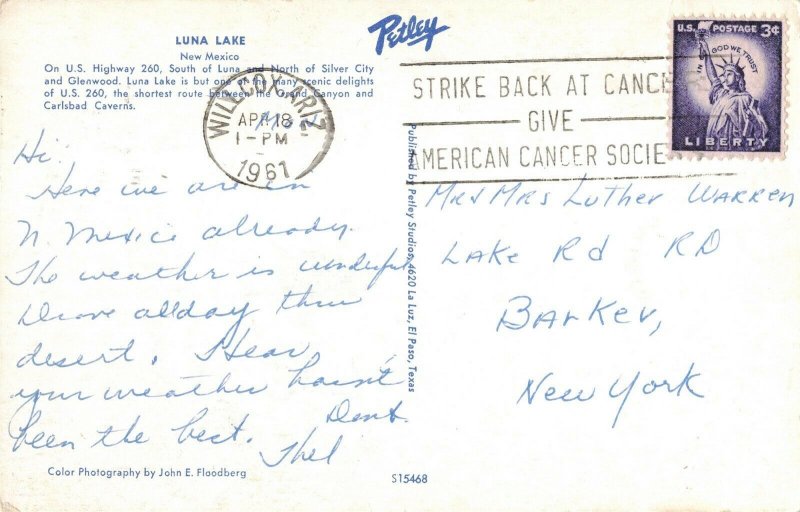 LUNA LAKE
New Mexico
On U.S. Highway 260, South of Luna and North of Silver City
and Glenwood. Luna Lake is but one of the many scenic delights
of U.S. 260, the shortest route between the Grand Canyon and
Carlsbad Caverns.
Petley
WILLCOX, ARIZ
APR 18
1-PM
1961
STRIKE BACK AT CANCE
GIVE
AMERICAN CANCER SOCIE
U.S. POSTAGE 3¢
IN GOD WE TRUST
LIBERTY
Hi.
Here we are in
N. Mexico already.
The weather is wonderful
Drove all day thru
desert. I hear
your weather hasn't
been the best.
Thel
Published by Petley Studios, 4620 La Luz, El Paso, Texas
Mr & Mrs Luther Warren
Lake Rd RD
Barker,
New York
Color Photography by John E. Floodberg
S15468